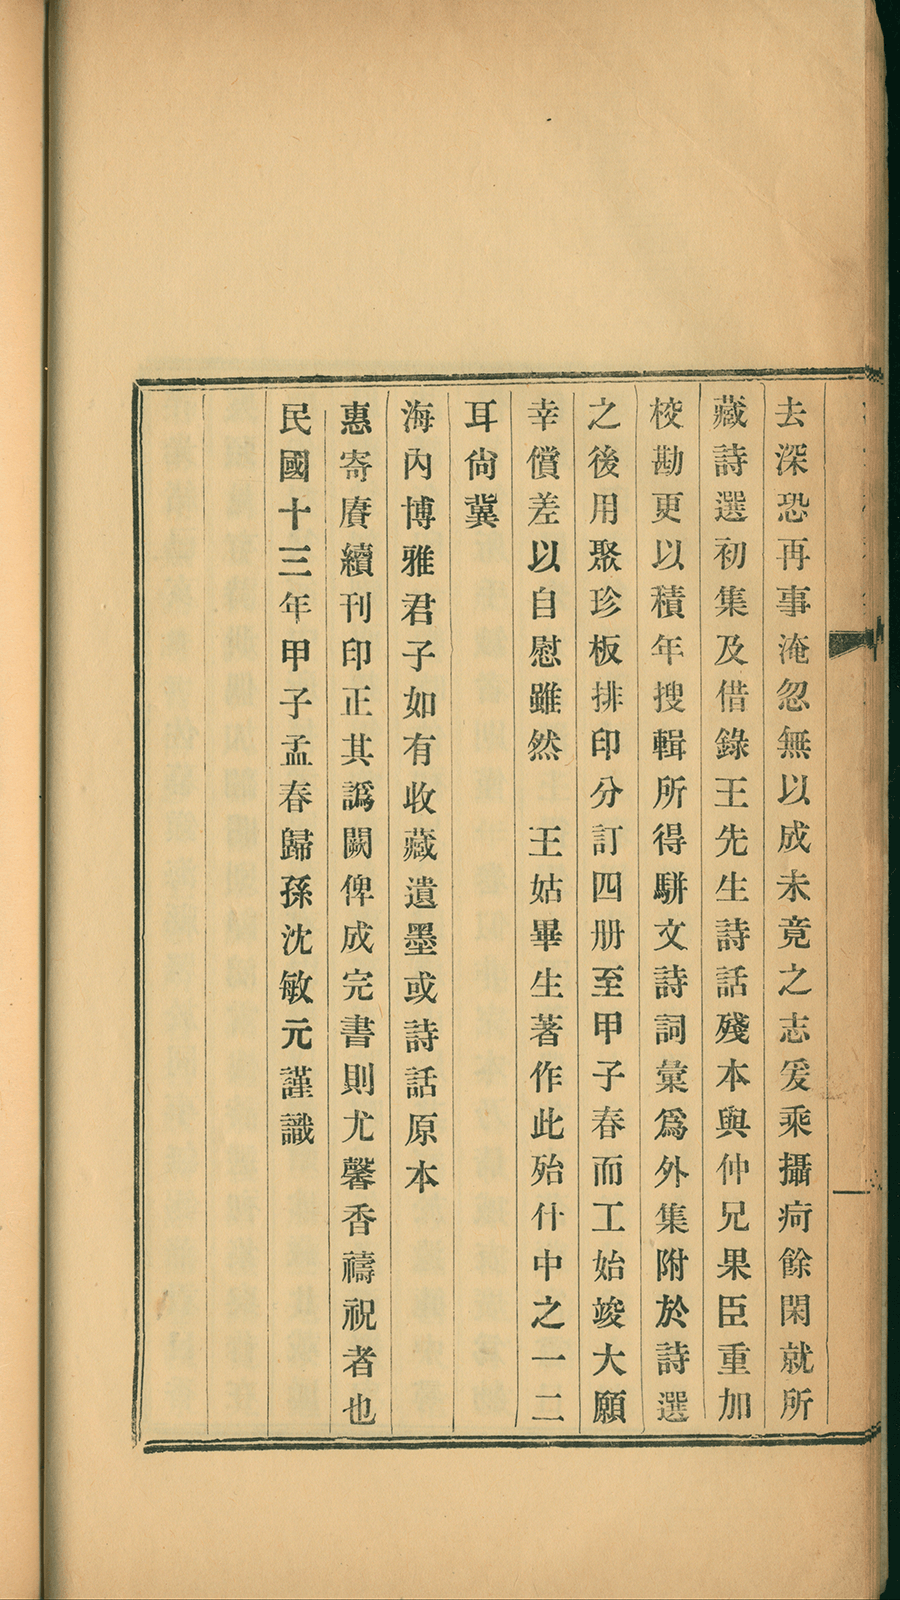 去深恐再事淹忽無以成未竟之志爰乘攝疴餘閑就所
藏詩選初集及借錄王先生詩話殘本與仲兄果臣重加
校勘更以積年搜輯所得駢文詩詞彙爲外集附於詩選
之後用聚珍板排印分訂四册至甲子春而工始竣大願
幸償差以自慰雖然　王姑畢生著作此殆什中之一二
耳尙冀
海內博雅君子如有收藏遺墨或詩話原本
惠寄賡續刊印正其譌闕俾成完書則尤馨香禱祝者也
民國十三年甲子孟春歸孫沈敏元謹識